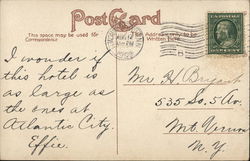 Post Card
This space may be used for
Correspondence
I wonder if
this hotel is
as large as
the ones at
Atlantic City.
Effie.
Mr H Bryant
535 So. 5 Av.
Mt. Vernon
N. Y.